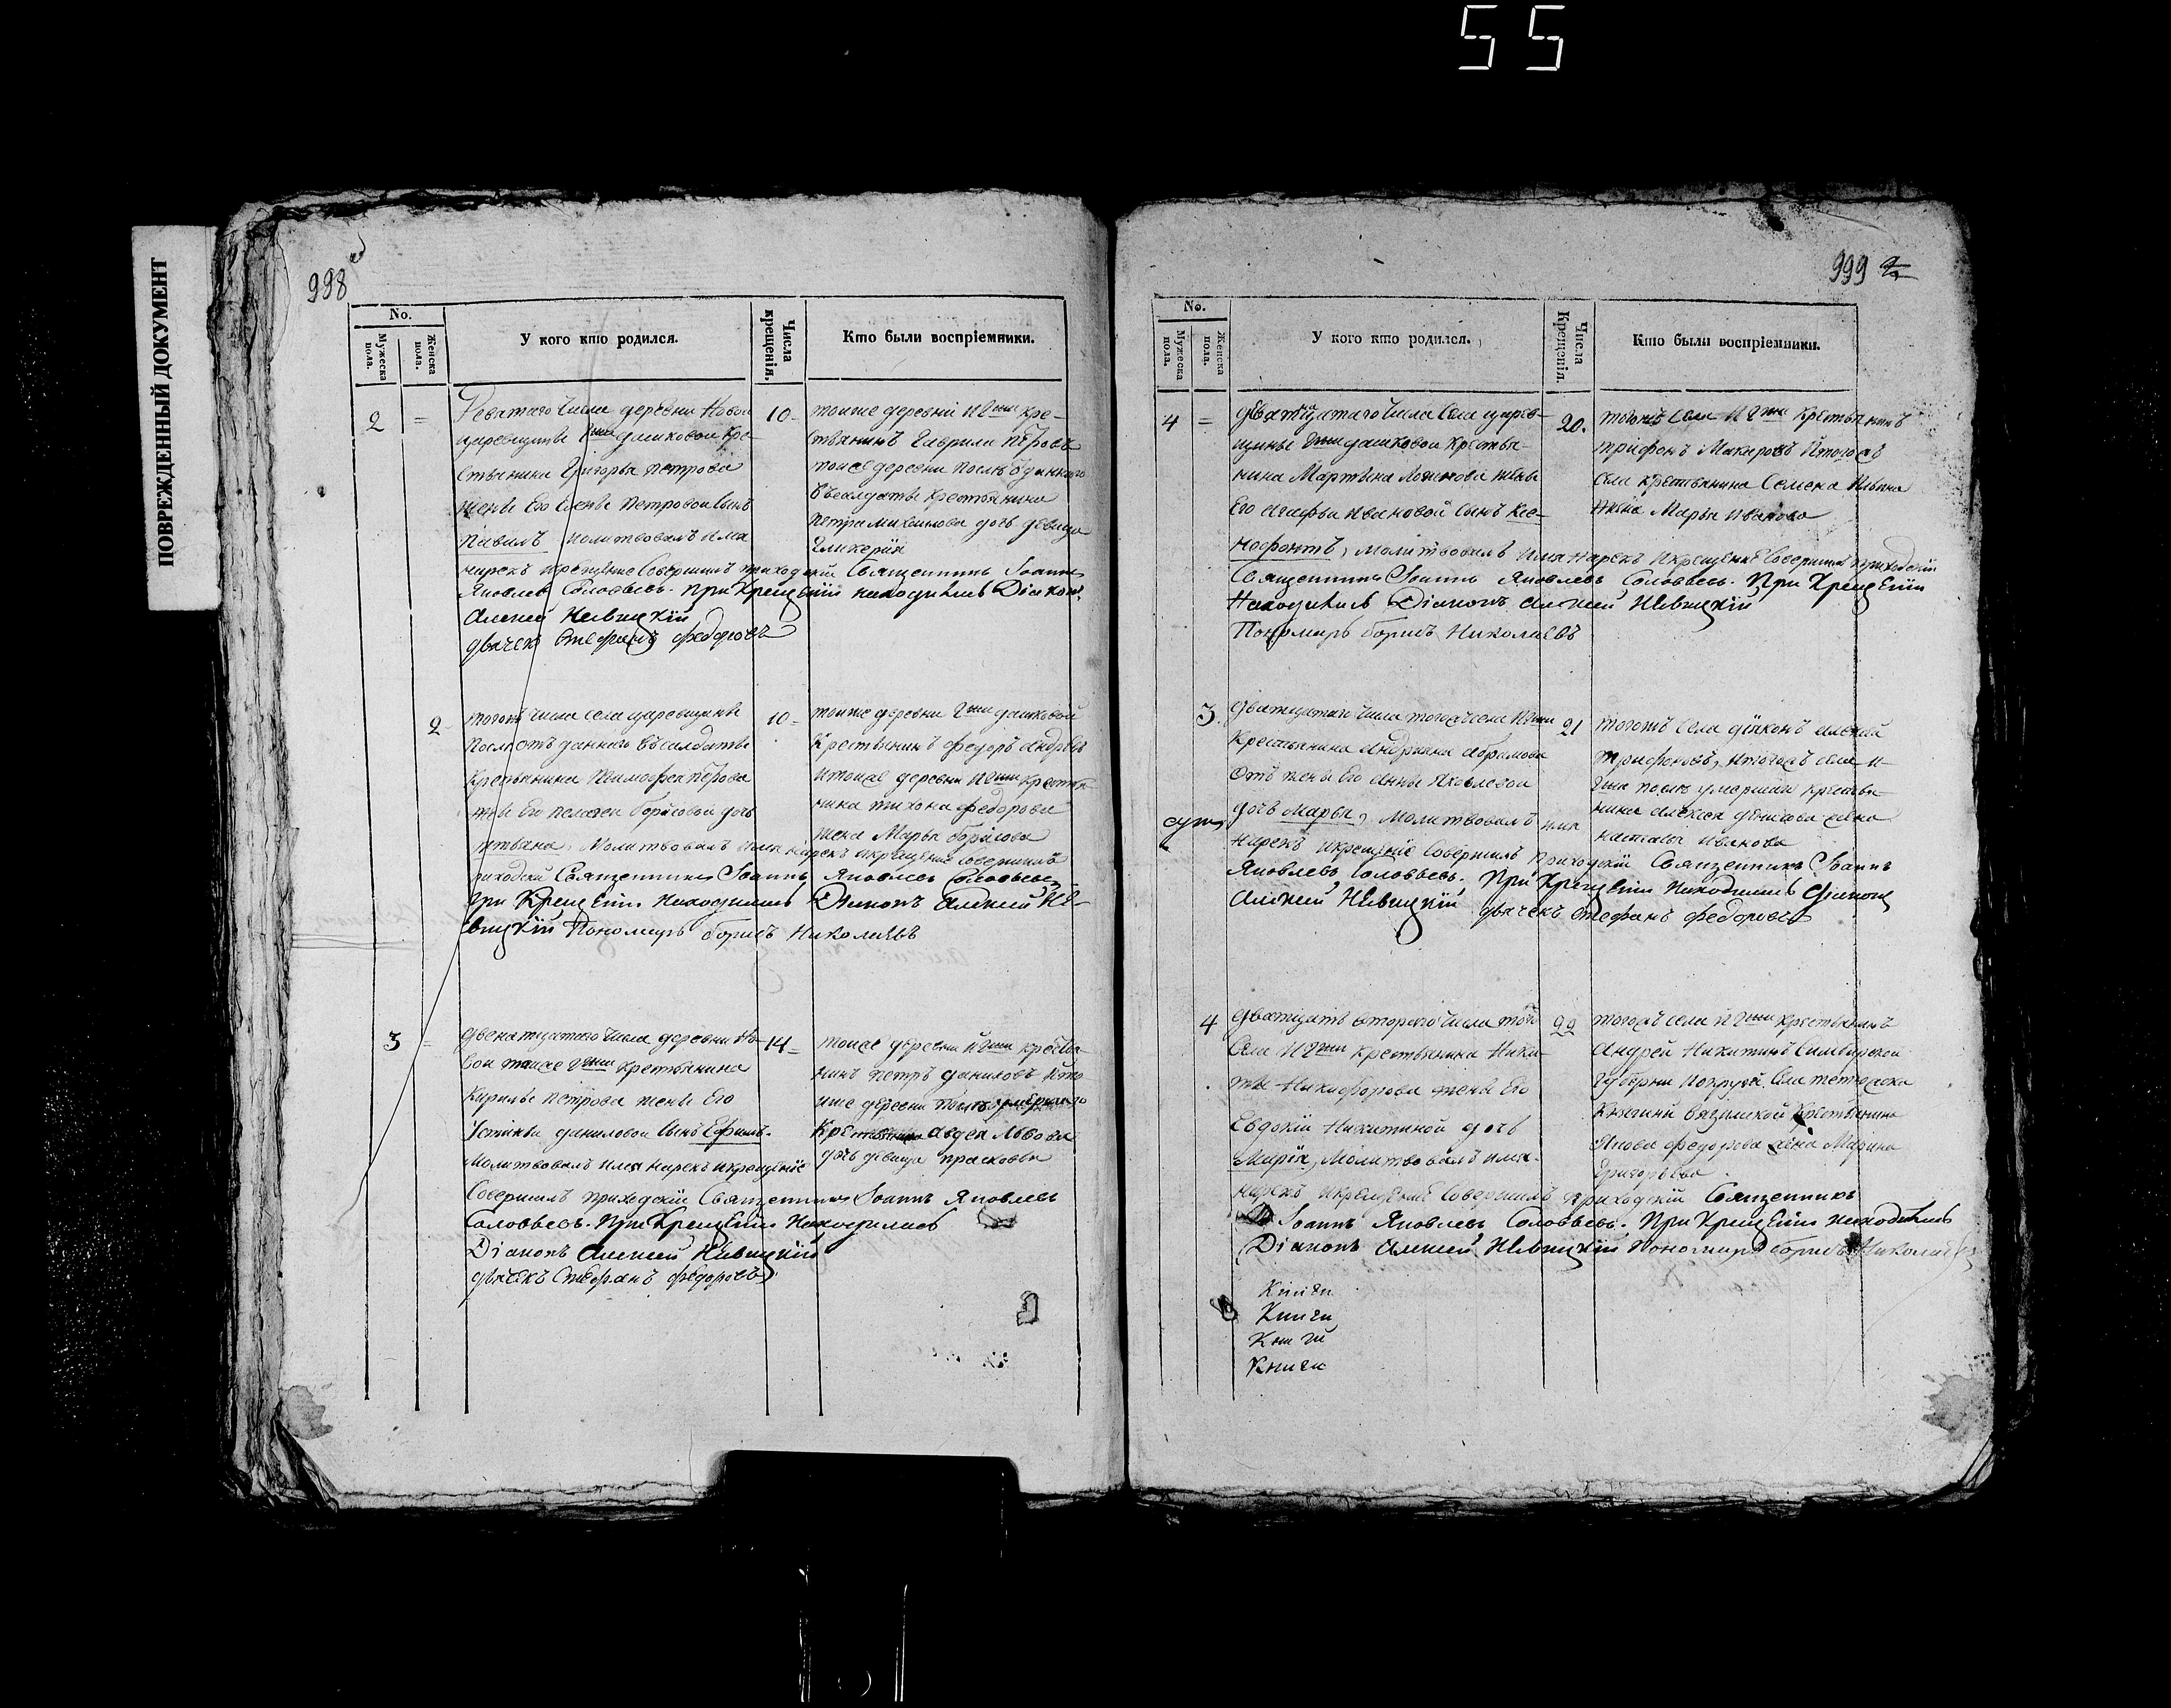 55
ПОВРЕЖДЕННЫЙ ДОКУМЕНТ
998
No.
Мужеска пола.
Женска пола.
У кого кто родился.
Числа крещенія.
Кто были воспріемники.
2 = Деватаго числа деревни Новой
Царевщины Гжи дашковой Кре-
стьянина Григорья Петрова
жены Его Петровой сынъ
Павилъ молитвовалъ има
нарекъ икрещение Совершилъ приходскій Священникъ Іоаннъ
Яковлевъ Соловьевъ. При Крещеніи находились Діаконъ
Алексей Невицкій
дьячекъ Стефанъ федоровъ
10 тойже деревни И Гжи Кре-
стьянинъ Гаврила Петровъ
тойже деревни послѣ отданнаго
въсалдаты крестьянина
петра дочь девица
Гликерія
2 тогожъ числа села царевщины
послѣ отданнаго въсалдаты
крестьянина Тимофея петрова
жены Его пелагеи борисовой дочь
татьяна, молитвовалъ има нарекъ икрещение совершилъ
приходски Священникъ Іоаннъ Яковлевъ Соловьевъ
При Крещеніи Находились Діаконъ Алексей Не-
вицкій Пономарь борисъ Николаевъ
10 тойже деревни Гжи дашковой
Крестьянинъ федоръ андреевъ
итойже деревни И Гжи крестья-
нина тихона федорова
жена Марья борисова
3 = двенатцатаго числа деревни Но-
вой тойже Гжи крестьянина
Кирилы петрова жены Его
Устиньи даниловой сынъ Ефимъ.
молитвовалъ имя нарекъ икрещение
Совершилъ приходскій Священникъ Іоаннъ Яковлевъ
Соловьевъ. При Крещеніи Находились
Діаконъ Алексей Невицкій
дьячекъ Стефанъ федоровъ
14 тойже деревни И Гжи крестья-
нинъ петръ даниловъ ито-
йже деревни послѣ умершаго
Крестьянина авдея Львова
дочь девица прасковья
999
No.
Мужеска пола.
Женска пола.
У кого кто родился.
Числа Крещенія.
Кто были воспріемники.
4 = дватцатаго числа села царев-
щины Гжи дашковой крестья-
нина Мартина жены
Его агафьи ивановой сынъ ксе-
нофонтъ, молитвовалъ имя нарекъ икрещение Совершилъ приходскій
Священникъ Іоаннъ Яковлевъ Соловьевъ. При Крещеніи
Находились Діаконъ Алексей Невицкій
Пономарь борисъ Николаевъ
20. тогожъ села И Гжи крестьянинъ
трифонъ Макаровъ Итогожъ
села крестьянина Семена Ильина
жена Марья иванова
3. дватцатаго числа тогожъ села И Гжи
Крестьянина андриана абрамова
Отъ жены Его анны Яковлевой
дочь Марья, молитвовалъ имя
нарекъ икрещеніе Совершилъ приходскій Священникъ Іоаннъ
Яковлевъ Соловьевъ. При Крещеніи Находились Діаконъ
Алексей Невицкій дьячекъ Стефанъ федоровъ
21 тогожъ села діаконъ алексей
трифоновъ, итогожъ села и
Гжи послѣ умершаго крестья-
нина алексея жена
настасья иванова
4 дватцать втораго числа того
Села И Гжи крестьянина Ники-
ты Никифорова жены Его
Евдокіи Никитиной дочь
Марія, молитвовалъ имя.
нарекъ икрещение Совершилъ приходскій Священникъ
Іоаннъ Яковлевъ Соловьевъ. При Крещеніи находились
Діаконъ Алексей Невицкій Пономарь борисъ Николаевъ
22 тогожъ села И Гжи крестьянинъ
Андрей Никитинъ Симбирской
Губерни села
Княгини вяземской крестьянина
Якова федорова жена Марина
Григорьева
Книги
Книги
Книги
Книги